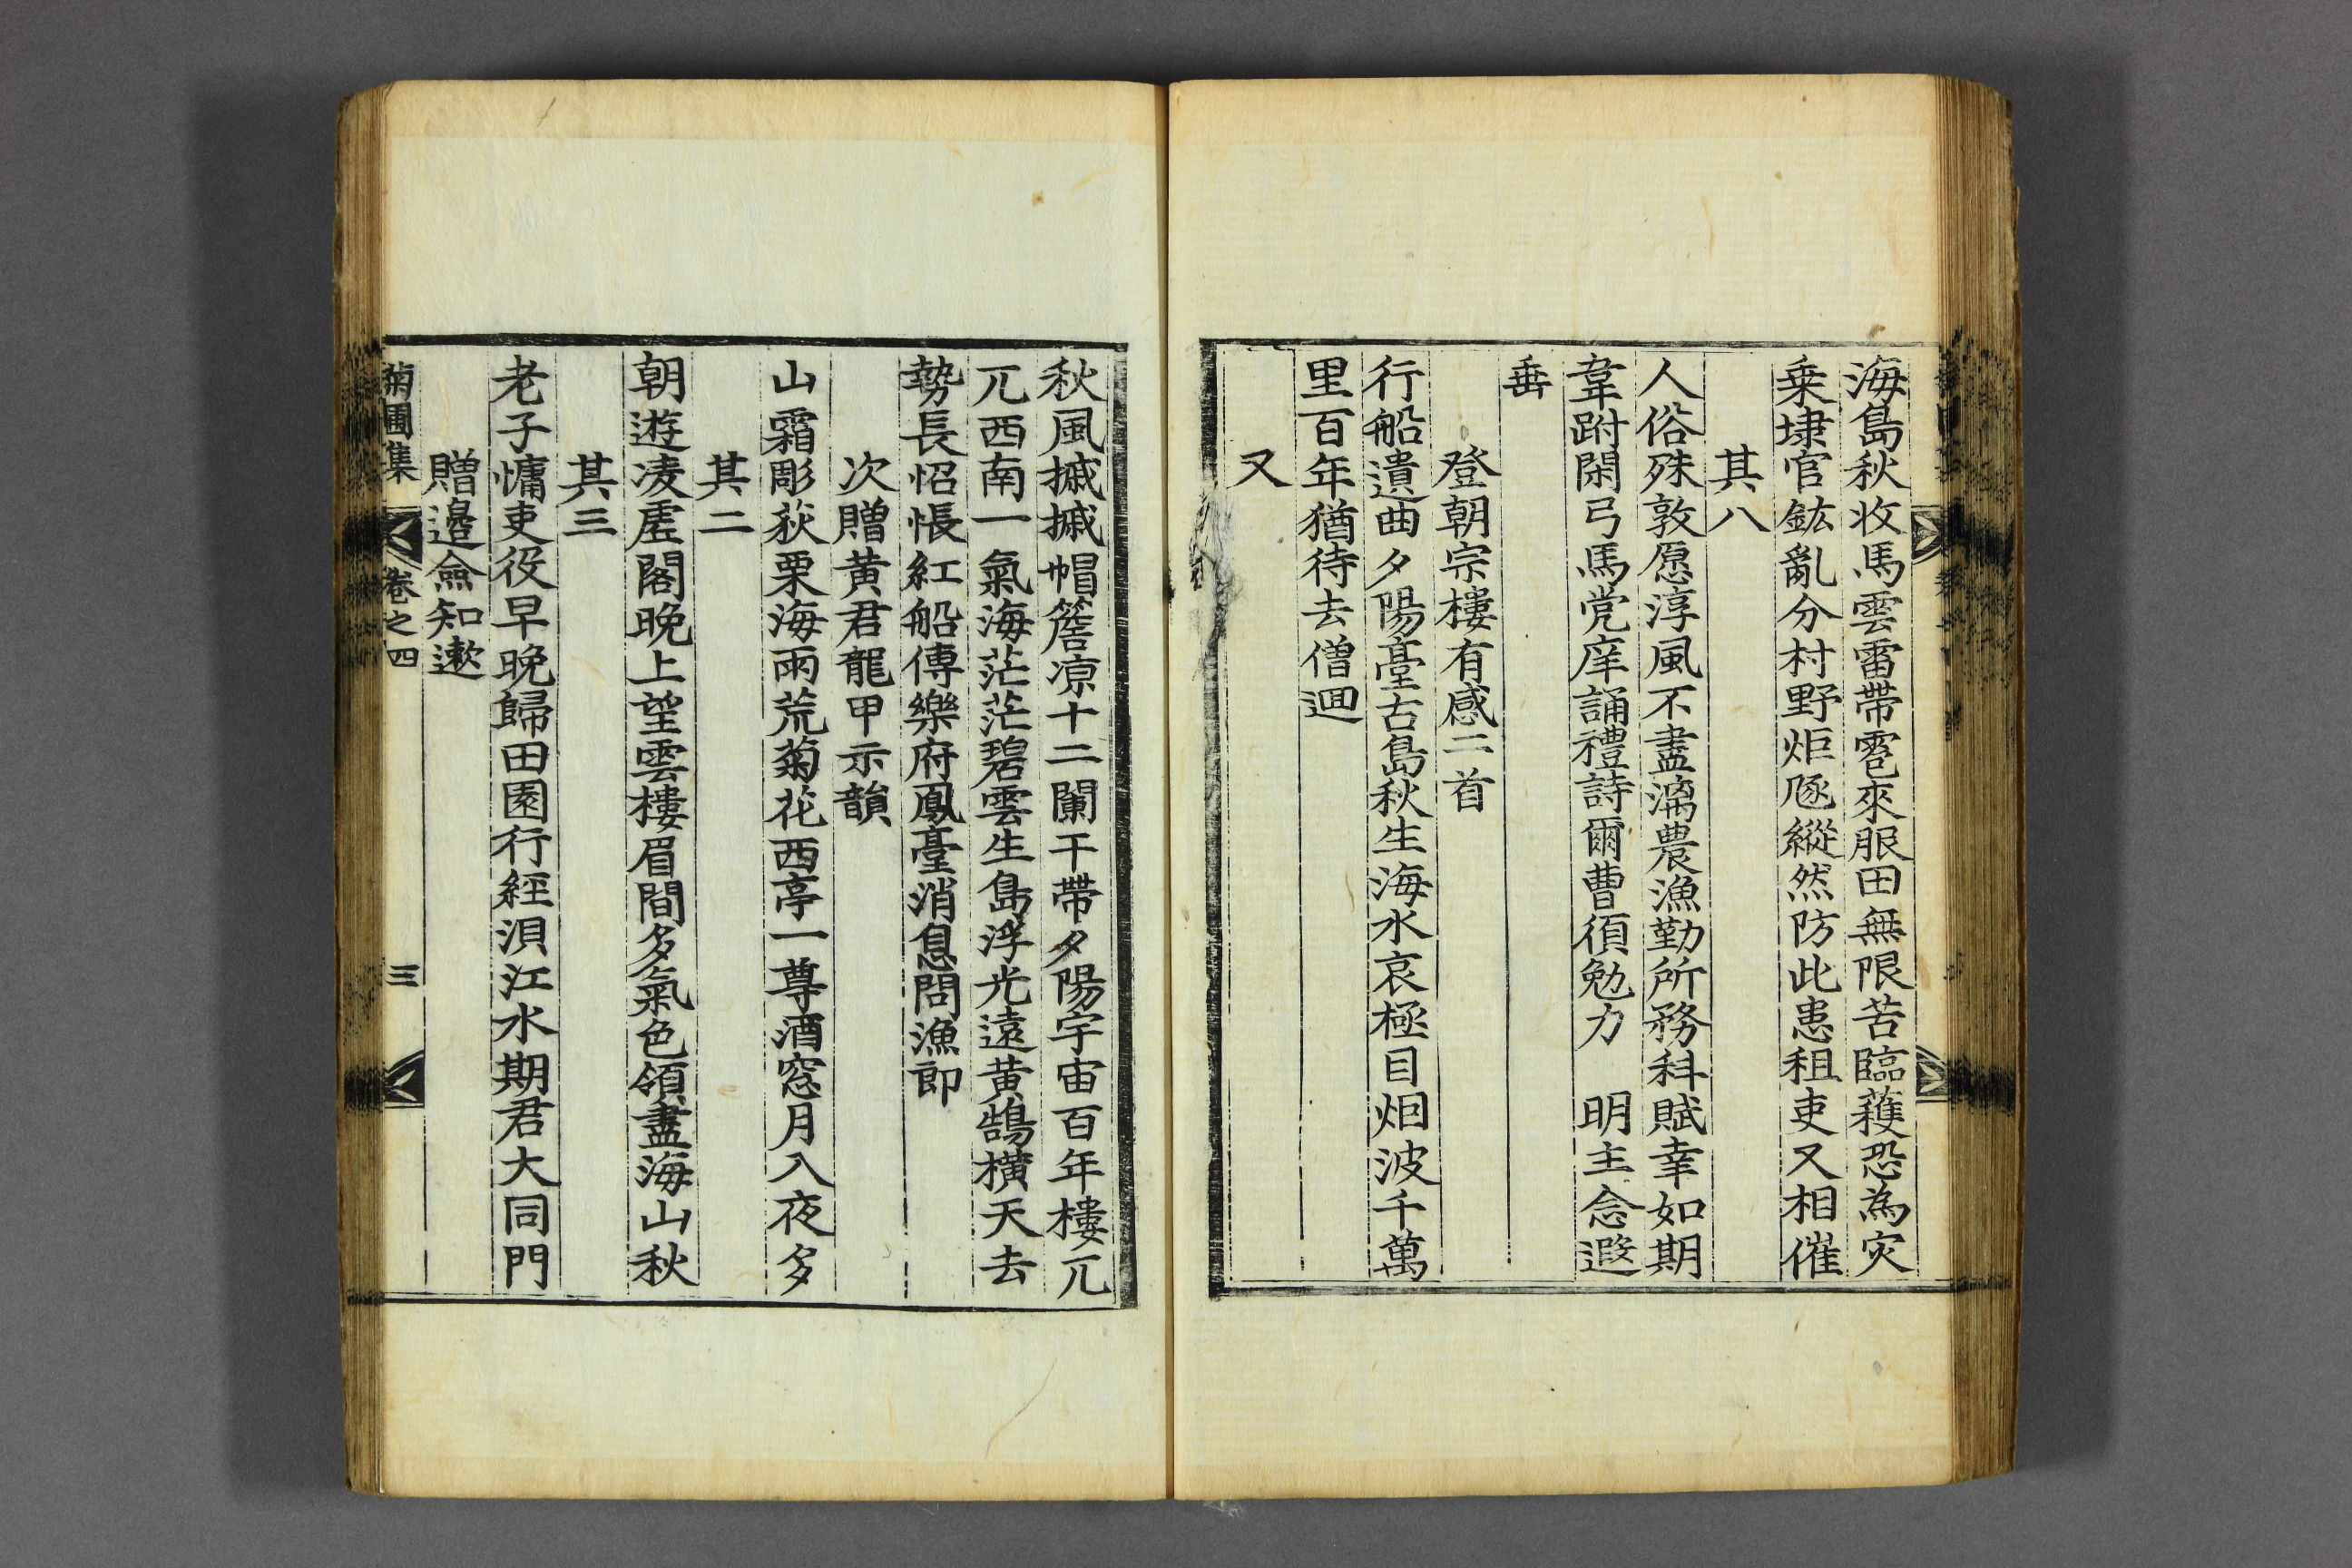 海島秋收馬雲雷帶雹來服田無限苦臨蓷恐為灾
乘埭官鈜亂分村野炬豗縱然防此患租吏又相催
其八
人俗殊敦愿淳風不盡漓農漁勤所務科賦幸如期
韋跗閑弓馬党庠誦禮詩爾曹須勉力 明主念遐
垂
登朝宗樓有感二首
行船遺曲夕陽臺古島秋生海水哀極目烟波千萬
里百年猶待去僧迴
又
秋風摵摵帽簷凉十二闌干帶夕陽宇宙百年樓兀
兀西南一氣海茫茫碧雲生島浮光遠黄鵠橫天去
勢長怊悵紅船傳樂府鳳臺消息問漁郎
次贈黄君龍甲示韻
山霜彫荻栗海雨荒菊花西亭一尊酒窓月入夜多
其二
朝遊凌虛閣晚上望雲樓眉間多氣色領盡海山秋
其三
老子慵吏役早晚歸田園行經浿江水期君大同門
贈邉僉知遬
菊圃集 卷之四 三